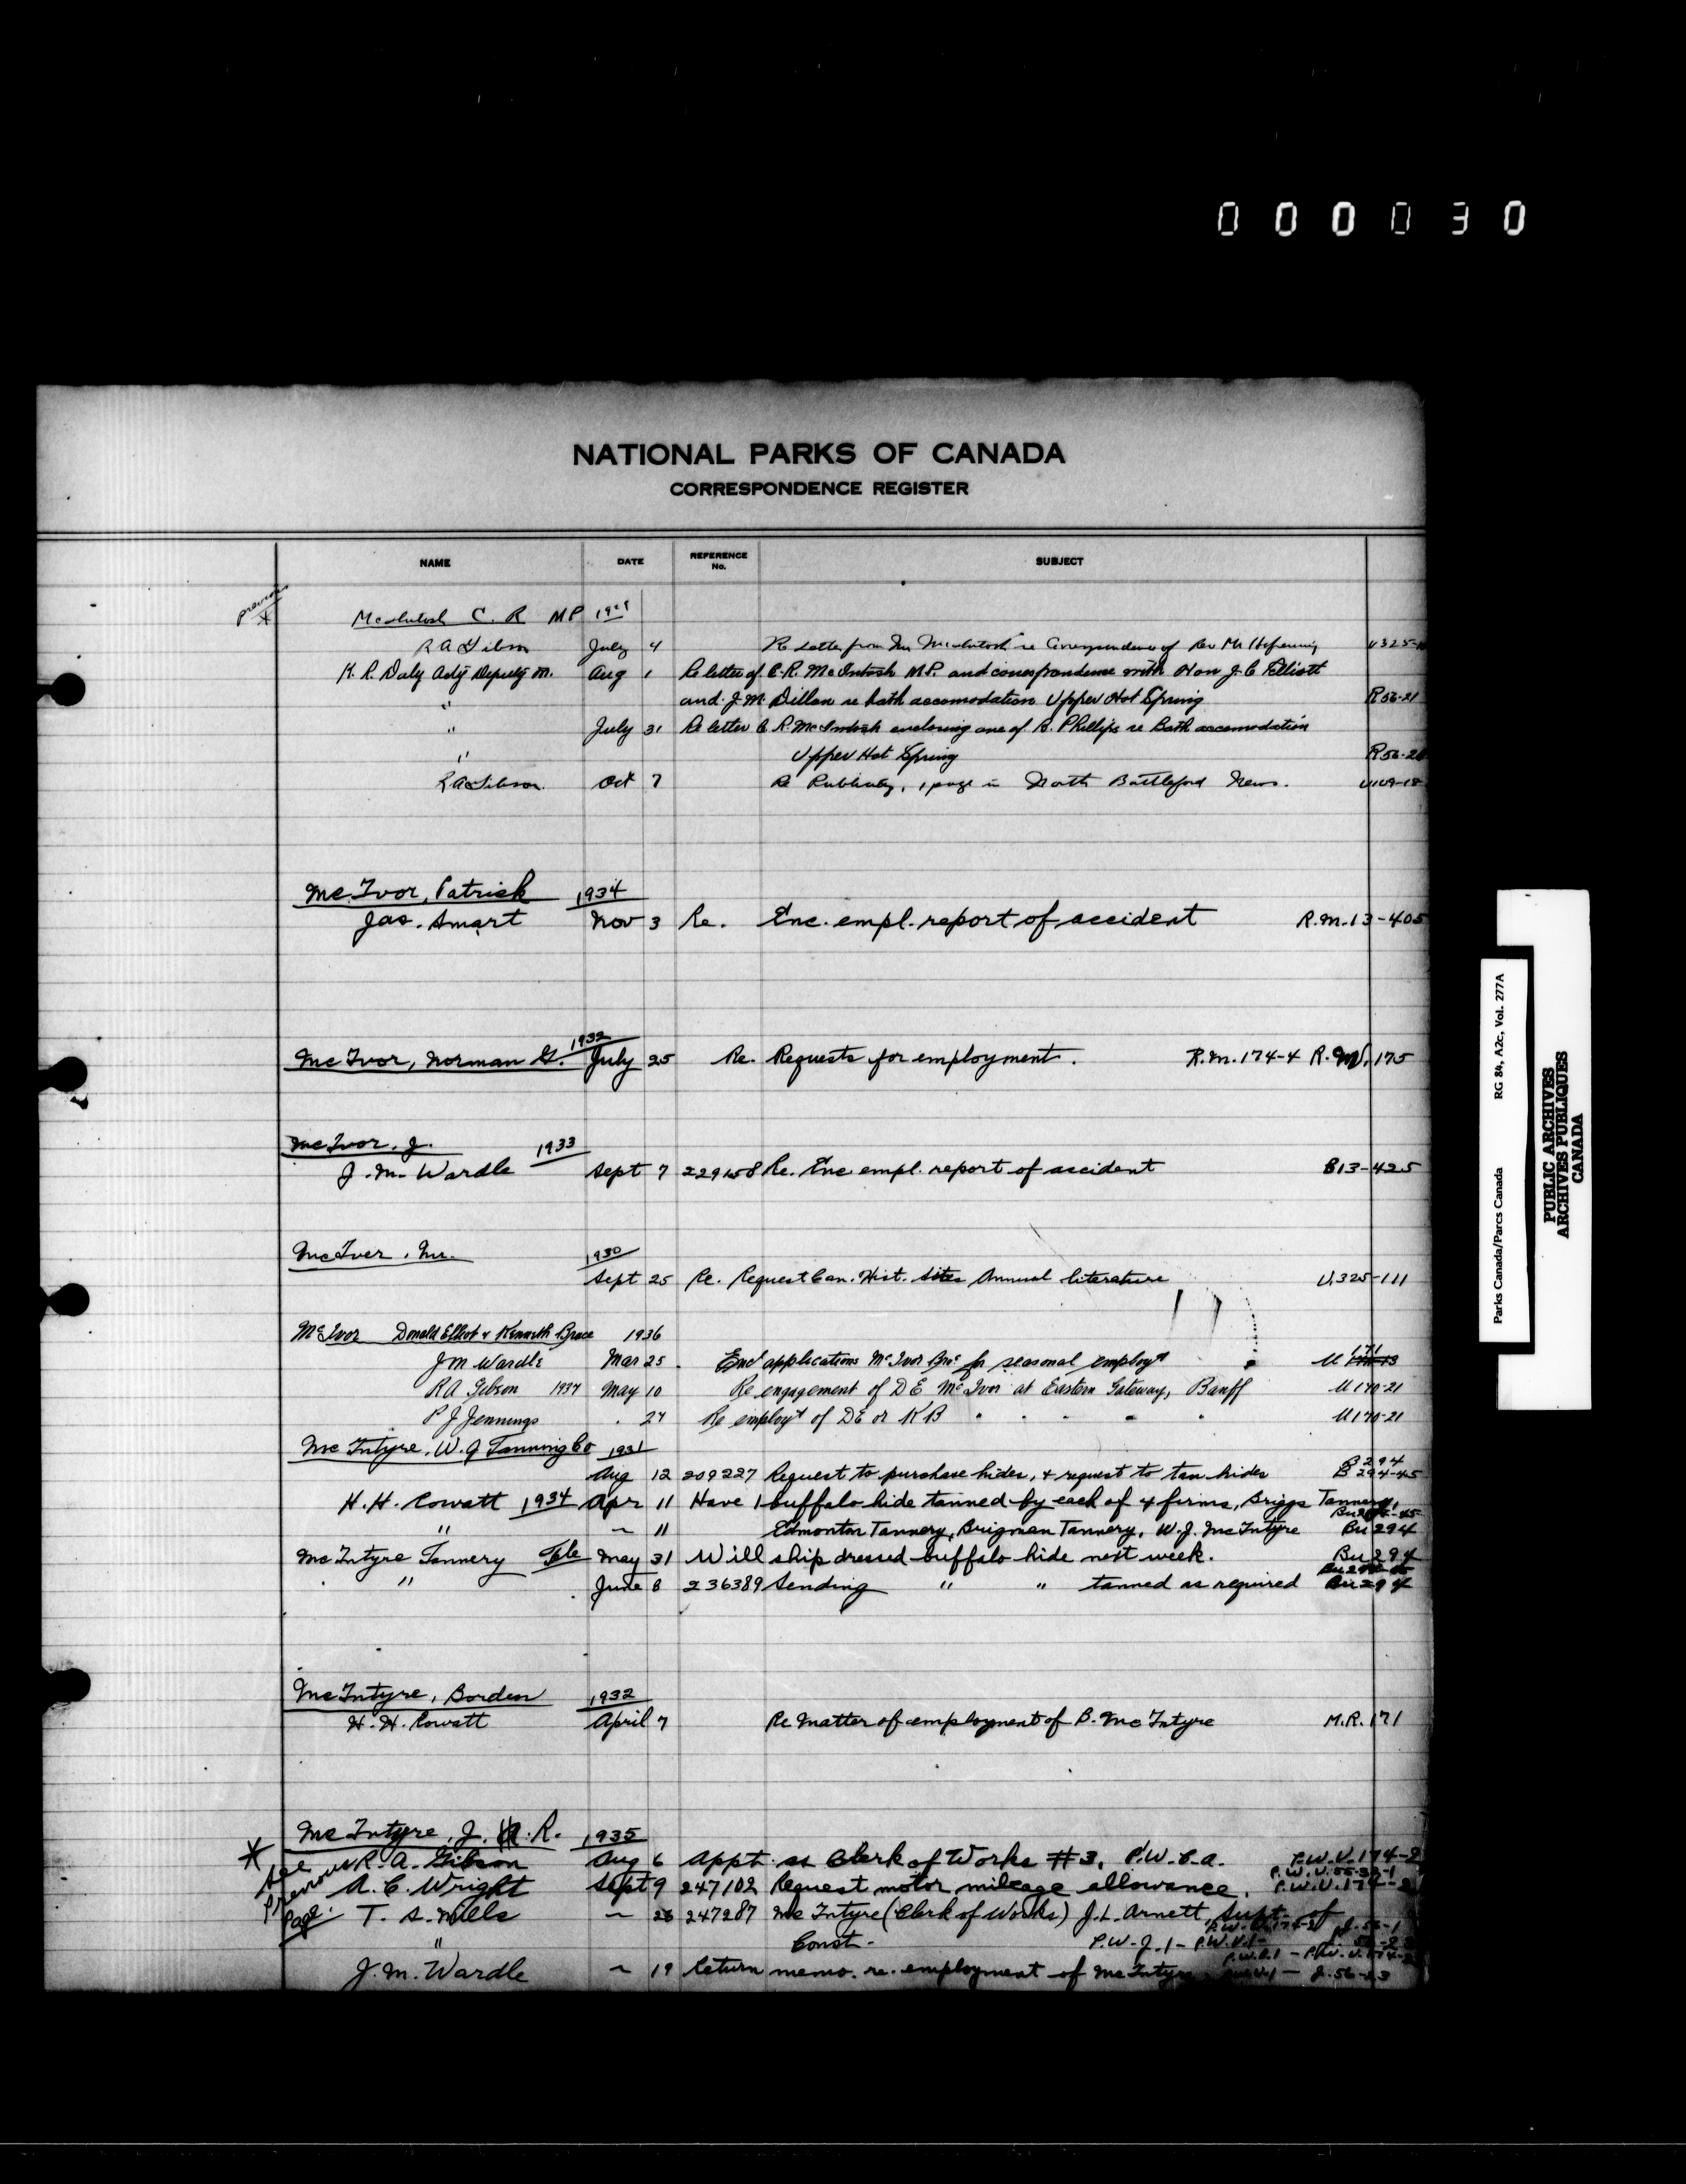 000030
NATIONAL PARKS OF CANADA
CORRESPONDENCE REGISTER
NAME DATE REFERENCE No. SUBJECT
previous *
McIntosh C. R MP
R A Gibson July 4 Re Letter from Mr McIntosh re Correspondence of Rev Mr U325-
H. R. Daly Actg Deputy M. Aug 1 Re letter of C.R. McIntosh M.P. and correspondence with Hon J.C Elliott
and J.M. Dillon re bath accomodation Upper Hot Spring R56-21
" July 31 Re letter C R. McIntosh enclosing one of R. Phillips re Bath accomodation
" Upper Hot Spring R56-21
R A Gibson. Oct 7 Re Publicity, 1 page in North Battleford News. U109-18
McIvor, Patrick 1934
Jas. Smart Nov 3 Re. Enc. empl. report of accident R.M.13-405
McIvor, Norman G. 1932 July 25 Re. Requests for employment. R.M.174-4 R.M.175
McIvor, J. 1933
J. M. Wardle Sept 7 Re. Enc empl. report of accident B13-425
McIver, Mr. 1930
Sept 25 Re. Request Can. Hist. Sites Annual literature U.325-111
McIvor Donald Elliot & Kenneth Bruce 1936
J M Wardle Mar 25. Encl applications McIvor Bros for seasonal employt U 171
R A Gibson 1937 May 10 Re engagement of D E McIvor at Eastern Gateway, Banff U170-21
P J Jennings . 27 Re employt of DE or KB " " " " " U170-21
McIntyre, W. J Tanning Co 1931
Aug 12 209227 Request to purchase hides, & request to tan hides B294 B294-45
H. H. Rowatt 1934 Apr 11 Have 1 buffalo hide tanned by each of 4 firms, Briggs Tannery,
" ~ 11 Edmonton Tannery, Brigman Tannery, W. J. McIntyre Bu294
McIntyre Tannery Tele May 31 Will ship dressed buffalo hide next week. Bu294
" June 8 236389 Sending " " tanned as required Bu294
McIntyre, Borden 1932
H. H. Rowatt April 7 Re Matter of employment of B. McIntyre M.R.171
McIntyre, J. R. 1935
* see previous page.
R. A. Gibson Aug 6 Appt. as Clerk of Works #3, P.W.C.A. P.W.U.174-2
A. C. Wright Sept 9 247102 Request motor mileage allowance. P.W.U.174-2
T. S. Mills ~ 26 247287 McIntyre (Clerk of Works) J.L. Arnett Supt. of
" Const. P.W.J.1 - P.W.U.1-
J. M. Wardle ~ 19 Return memo. re. employment of McIntyre J.56-23
RG 84, A2c, Vol. 277A
Parks Canada/Parcs Canada
PUBLIC ARCHIVES
ARCHIVES PUBLIQUES
CANADA